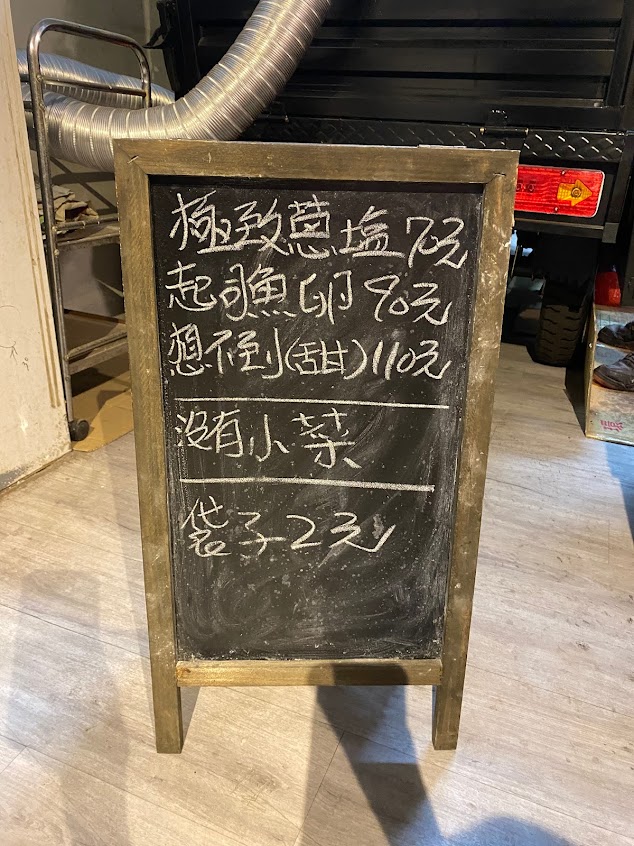 極致蔥塩70元
起司魚卵90元
想不到(甜)110元
沒有小菜
袋子2元